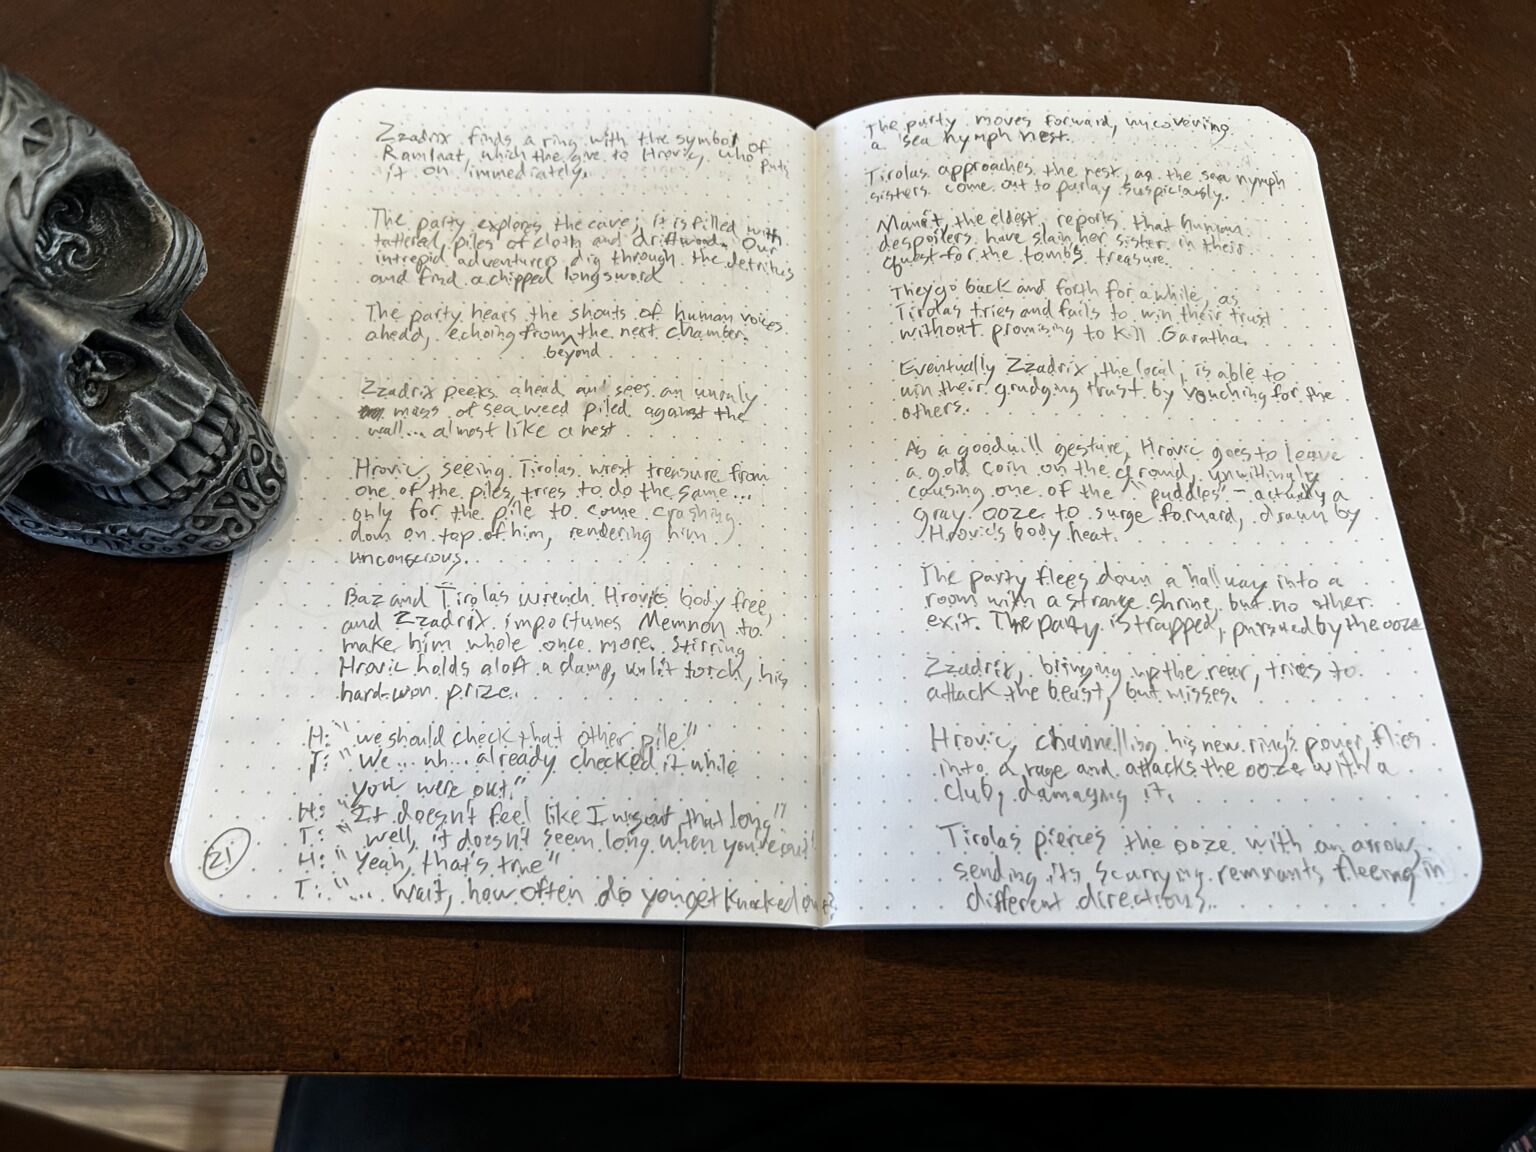 Zzadrix finds a ring with the symbol of
Ramnat, which the give to Hrovic, who puts
it on immediately.
The party explores the cave; it is filled with
tattered piles of cloth and driftwood. Our
intrepid adventurers dig through the detritus
and find a chipped longsword
The party hears the shouts of human voices
ahead, echoing from the next chamber.
beyond
Zzadrix peeks ahead and sees an unruly
mass of seaweed piled against the
wall... almost like a nest
Hrovic, seeing Tirolas wrest treasure from
one of the piles, tries to do the same...
only for the pile to come crashing
down on top of him, rendering him
unconscious.
Baz and Tirolas wrench Hrovic's body free,
and Zzadrix importunes Memnon to
make him whole once more. Stirring
Hrovic holds aloft a damp, unlit torch, his
hard-won prize.
H: "we should check that other pile"
T: "We... uh... already checked it while
you were out."
H: "It doesn't feel like I was out that long"
T: "well, it doesn't seem long when you're out"
H: "Yeah, that's true"
T: "... wait, how often do you get knocked out?
21
The party moves forward, uncovering
a sea nymph nest.
Tirolas approaches the nest, as the sea nymph
sisters come out to parlay suspiciously.
the eldest, reports that human
despoilers have slain her sister in their
quest for the tomb's treasure.
They go back and forth for a while, as
Tirolas tries and fails to win their trust
without promising to kill Garatha.
Eventually Zzadrix, the local, is able to
win their grudging trust by vouching for the
others.
As a goodwill gesture, Hrovic goes to leave
a gold coin on the ground, unwittingly
causing one of the "puddles" - actually a
gray ooze to surge forward, drawn by
Hrovic's body heat.
The party flees down a hallway into a
room with a strange shrine, but no other
exit. The party is trapped, pursued by the ooze
Zzadrix, bringing up the rear, tries to
attack the beast, but misses.
Hrovic, channelling his new ring's power, flies
into a rage and attacks the ooze with a
club, damaging it.
Tirolas pierces the ooze with an arrow,
sending its scurrying remnants fleeing in
different directions.